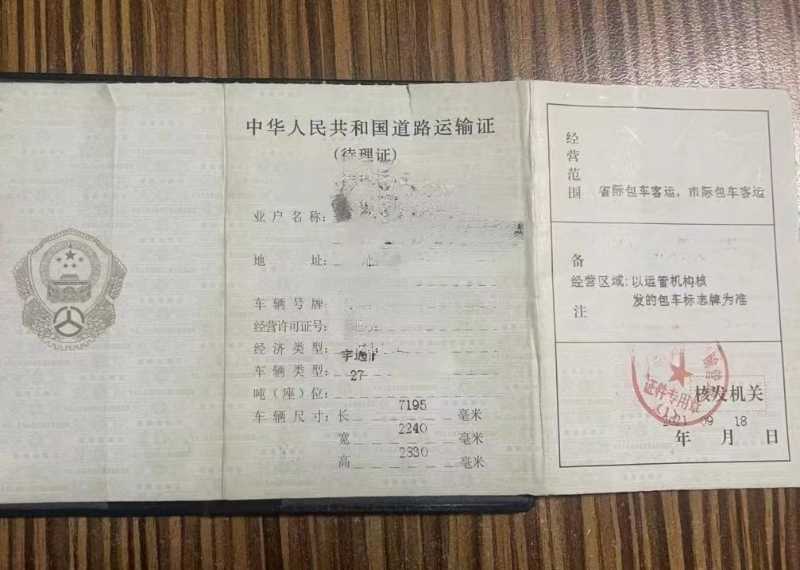 中华人民共和国道路运输证
(待理证)
业户名称:
地 址:
车辆号牌:
经营许可证号:
经济类型:
车辆类型: 宇通
吨(座)位: 27
车辆尺寸: 长 7195 毫米
宽 2240 毫米
高 2830 毫米
经营范围 省际包车客运,市际包车客运
备注
经营区域:以运管机构核
发的包车标志牌为准
证件专用章
核发机关
2021 09 18
年 月 日